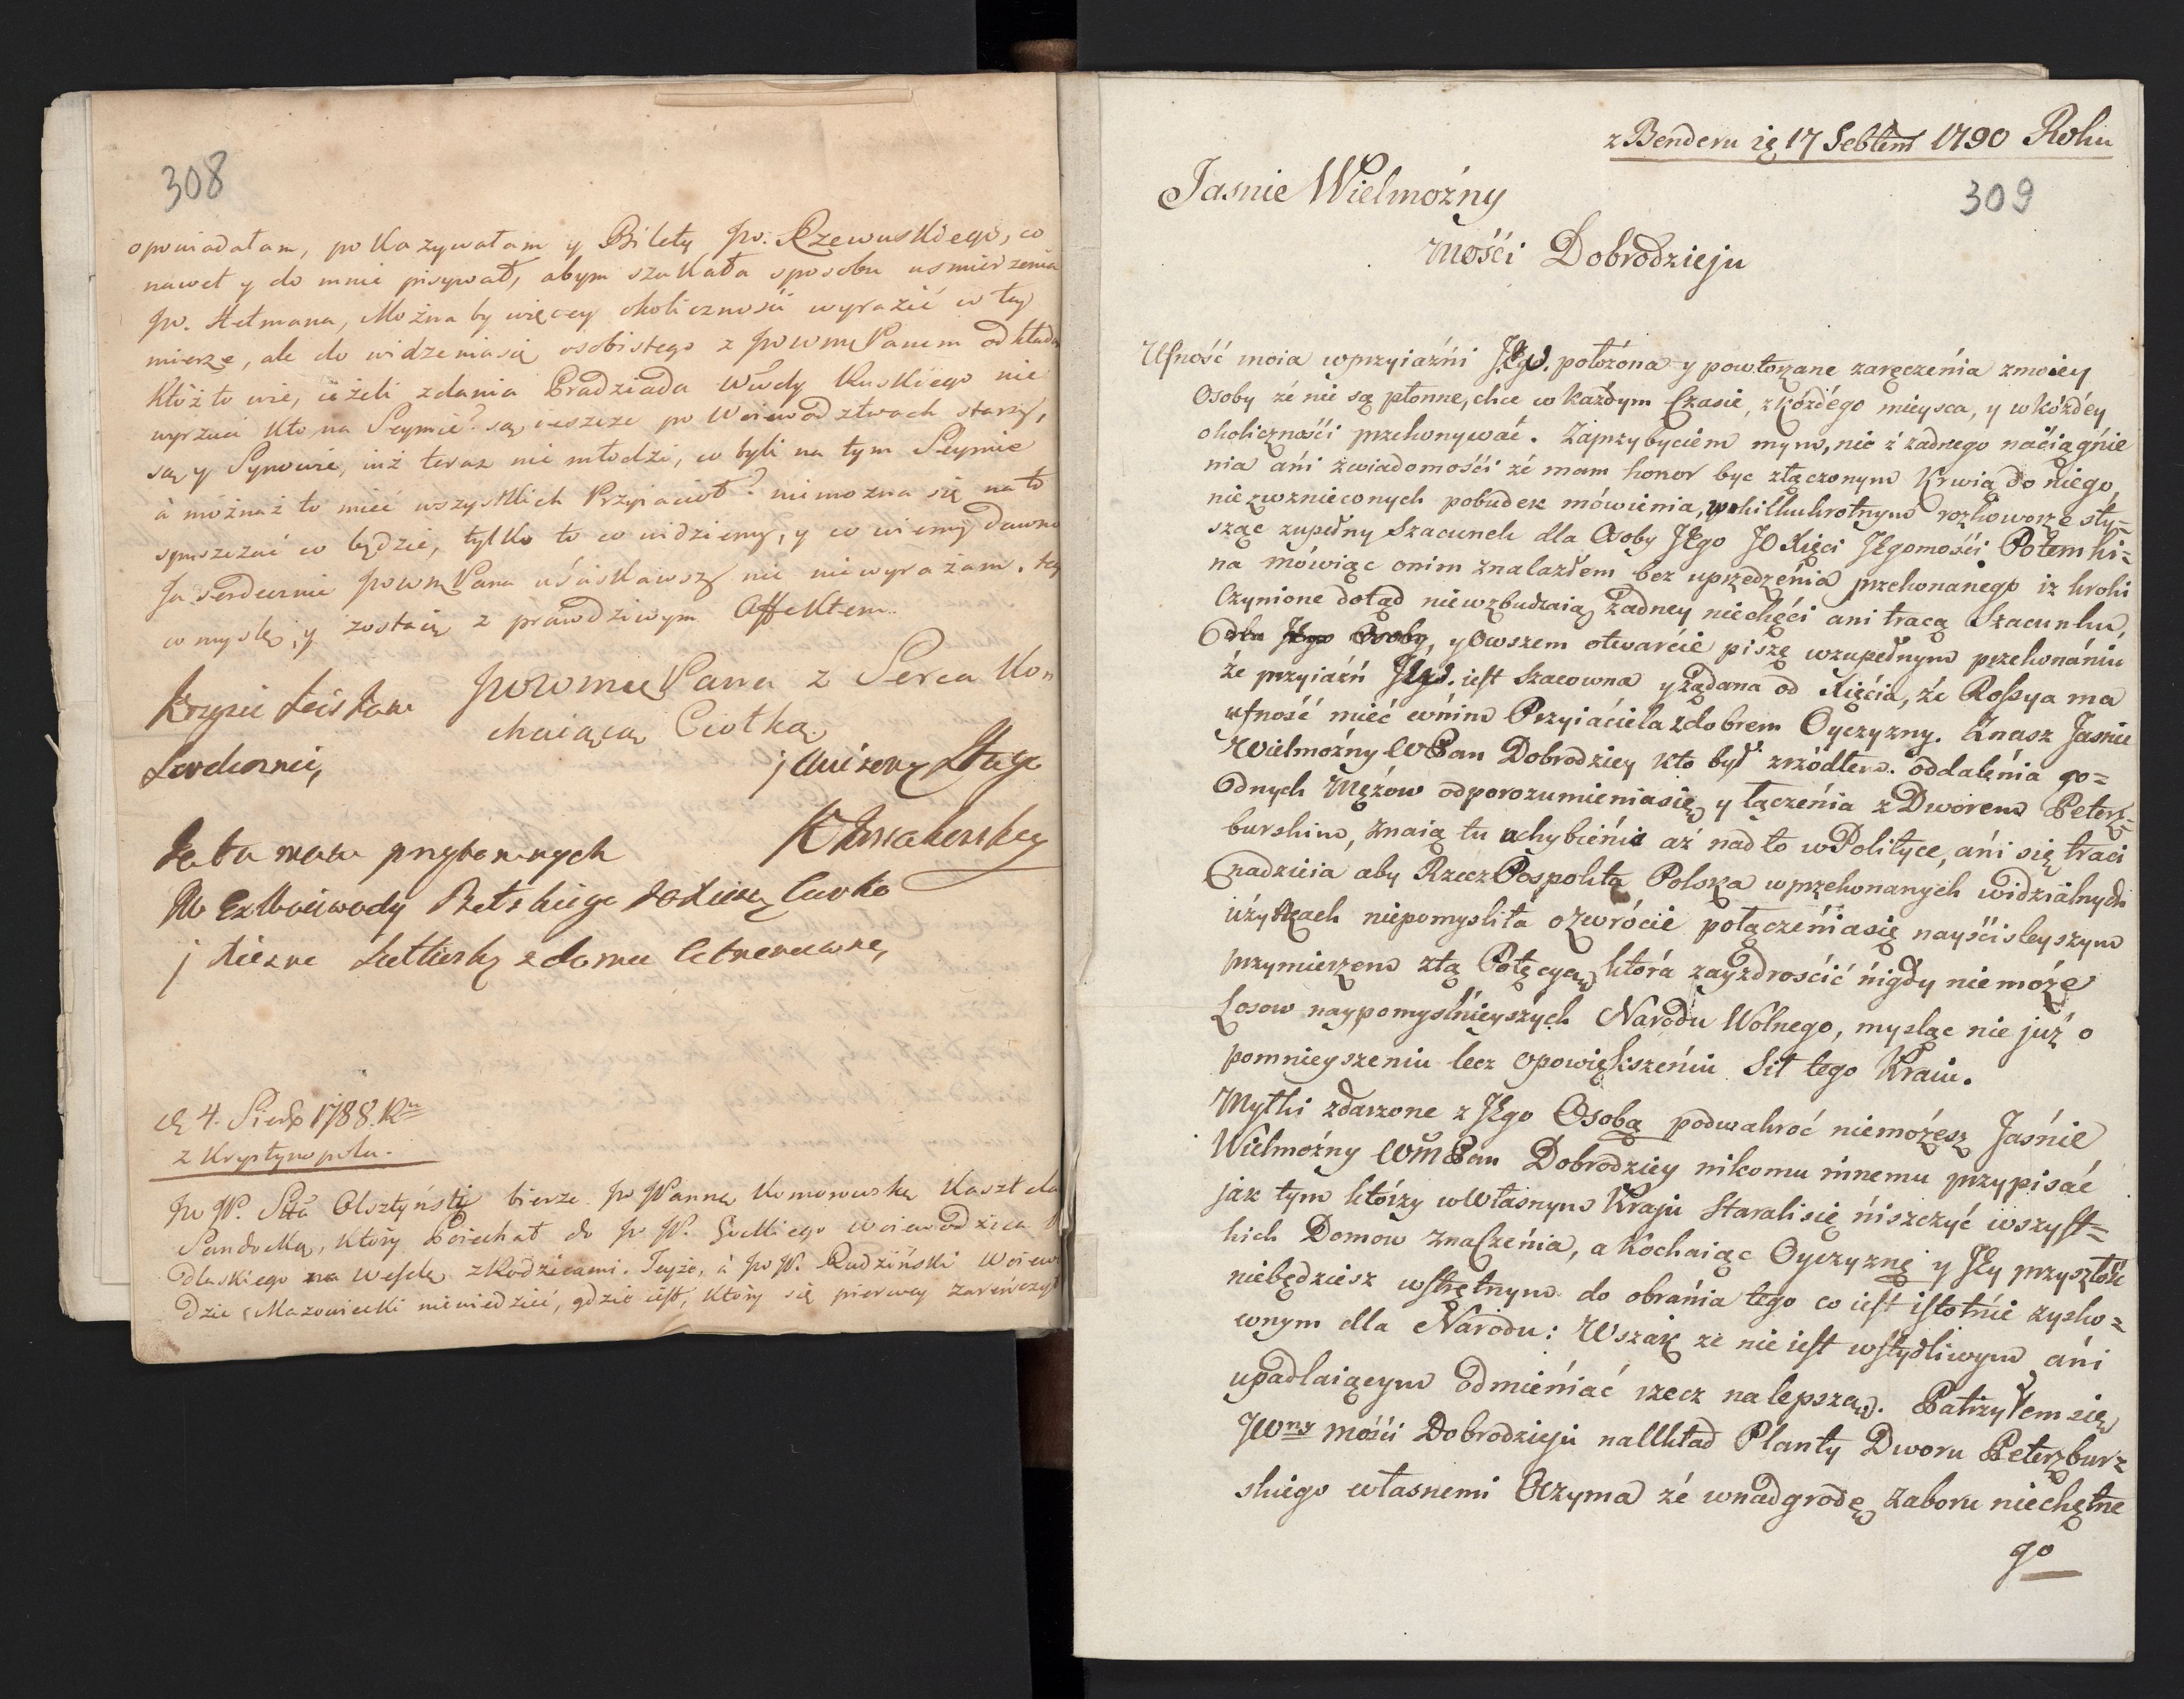 308
opowiadałam, pokazywałam y Bilety Jw. Rzewuskiego, co
nawet y do mnie pisywał, abym szukała sposobu usmierzenia
Jw. Hetmana, Można by więcey okoliczności wyrazić w tey
mierze, ale do widzenia się osobistego z JWWmPanem odkłada
Któż to wie, ieżeli zdania Pradziada Wwdy Ruskiego nie
wyrzuci kto na Seymie? są ieszcze po Woiewodztwach starzy,
są y Synowie, iuż teraz nie młodzi, co byli na tym Seymie
à możnaż to mieć wszystkich Przyiaciół? nie można się na to
spuszczać co będzie, tylko to co widziemy, y co wiemy dawno
Ja serdecznie JWWmPana uściskawszy nic nie wyrażam. tey
w myślę, y zostaię z prawdziwym Affektem.
JWWmPana z Serca Ko=
chaiącą Ciotką
Serdecznie,
i Sługa
Ja tu mam przytomnych
JW Ex Woiewody Bełskiego
z domu
d. 4. Sierp 1788. Ru
z Krystynopola.
Jw W. Stta Olsztyński bierze Jw Pannę Komorowską Kasztela
Sandecką, który Poiechał do Jw W. Woiewodzica
dlaskiego na Wesele z Rodzicami. Teyże, à Jw W. Rudziński Woiewo
dzic Mazowiecki nie wiedzieć, gdzie iest, który się pierwey zaręczył
z Benderu 17 Sebtem 1790 Roku
309
Jasnie Wielmożny
Mości Dobrodzieju
Ufność moia w przyiaźni JEgo. położona y powtorzane zaręczenia z moiey
Osoby że nie są płonne, chce w każdym Czasie, z kóżdego mieysca, y w kóżdey
okoliczności przekonywać. Za przybyciem mym, nie z żadnego naciągnie
nia ani z wiadomości że mam honor byc złączonym Krwią do niego,
nie z wznieconych pobudek mówienia, w kilkukrotnym rozhoworze sły=
sząc zupełny Szacunek dla Osoby JEgo JO Xięci JEgomości Potemki=
na mówiąc o nim znalazłem bez uprzedzenia przekonanego iz kroki
Czynione dotąd niewzbudzaią żadney niechęci ani tracą Szacunku,
dla JEgo Osoby, y Owszem otwarcie piszę w zupełnym przekonániu
że przyiaźń JEgo. iest Szacowna y żądana od Xięcia, że Rossya ma
ufność mieć w nim Przyiaciela z dobrem Oyczyzny. Znasz Jasnie
Wielmożny WPan Dobrodziey kto był zrzódłem oddalenia go=
dnych Mężow od porozumienia się y łączenia z Dworem Peterz=
burskim, znaią tu uchybienie aż nad to w Polityce, ani się traci
nadzieia aby Rzecz Pospolita Polska w przekonanych widzialnych
użytkach niepomysliła o zwrócie połączenia się nayściśleyszym
przymierzem z tą Potęcyą która zayzdrościć nigdy nie może
Losow naypomyślnieyszych Narodu Wolnego, mysląc nie już o
pomnieyszeniu lecz o powiększeniu Sił tego Kraiu.
Myłki zdarzone z JEgo Osobą podwakroć niemożesz Jaśnie
Wielmożny WmPan Dobrodziey nikomu innemu przypisać
jak tym którzy w własnym Kraju Starali się niszczyć wszyst=
kich Domow Znaczenia, a Kochaiąc Oyczyznę y JEy przyszłość
niebędziesz wstrętnym do obrania tego co iest istotnie zysko=
wnym dla Narodu: Wszak że nie iest wstydliwym ani
upadlaiącym odmieniać rzecz na lepszą. Patrzyłem się
JWny Mości Dobrodzieju na Układ Planty Dworu Peterzbur=
skiego własnemi Oczyma że w nadgrodę Zaboru niechętne
go